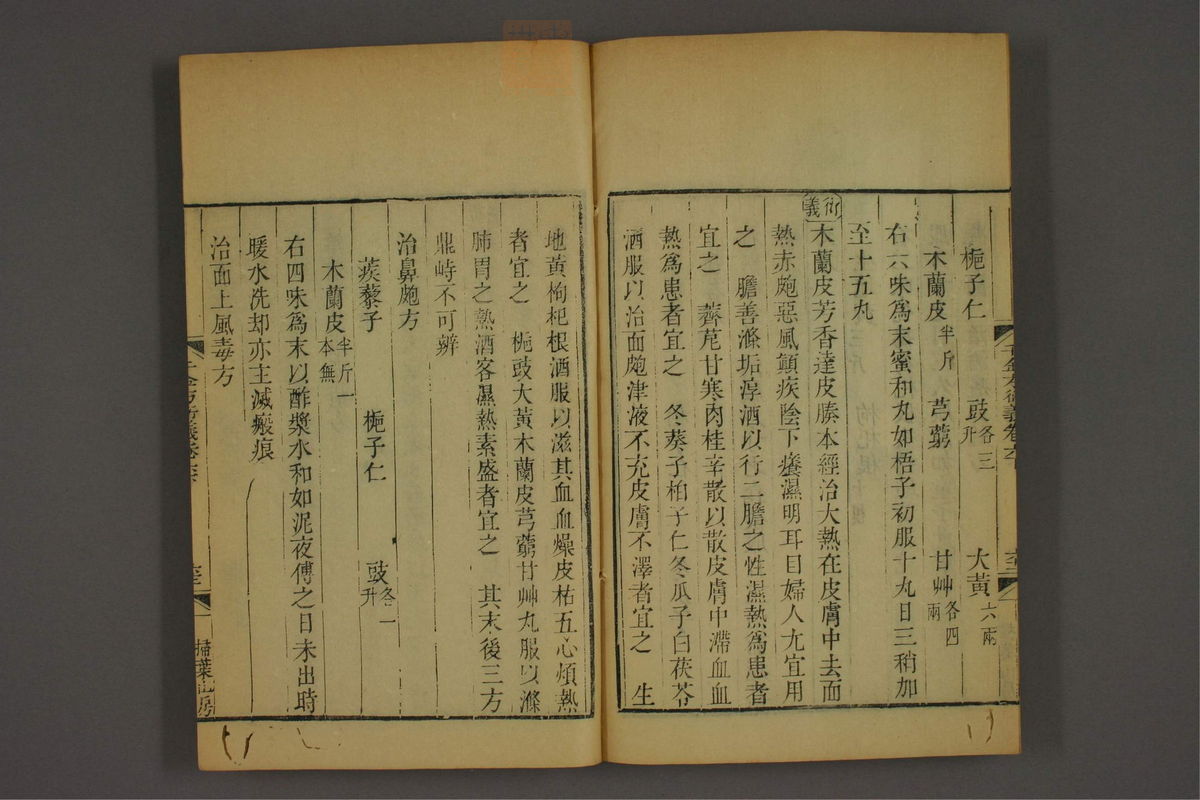 梔子仁　豉各三升　大黃六兩
木蘭皮半斤　芎藭　甘艸各四兩
右六味爲末蜜和丸如梧子初服十丸日三稍加
至十五丸
衍義
木蘭皮芳香達皮腠本經治大熱在皮膚中去面
熱赤皰惡風顛疾陰下癢濕明耳目婦人尤宜用
之　膽善滌垢淳酒以行二膽之性濕熱爲患者
宜之　薺苨甘寒肉桂辛散以散皮膚中滯血血
熱爲患者宜之　冬葵子柏子仁冬瓜子白茯苓
酒服以治面皰津液不充皮膚不澤者宜之　生
地黃枸杞根酒服以滋其血血燥皮枯五心煩熱
者宜之　梔豉大黃木蘭皮芎藭甘艸丸服以滌
肺胃之熱酒客濕熱素盛者宜之　其末後三方
鼎峙不可辨
治鼻皰方
蒺藜子　梔子仁　豉各一升
木蘭皮半斤一本無
右四味爲末以酢漿水和如泥夜傅之日未出時
暖水洗却亦主滅瘢痕
治面上風毒方
千金方衍義卷
掃葉山房